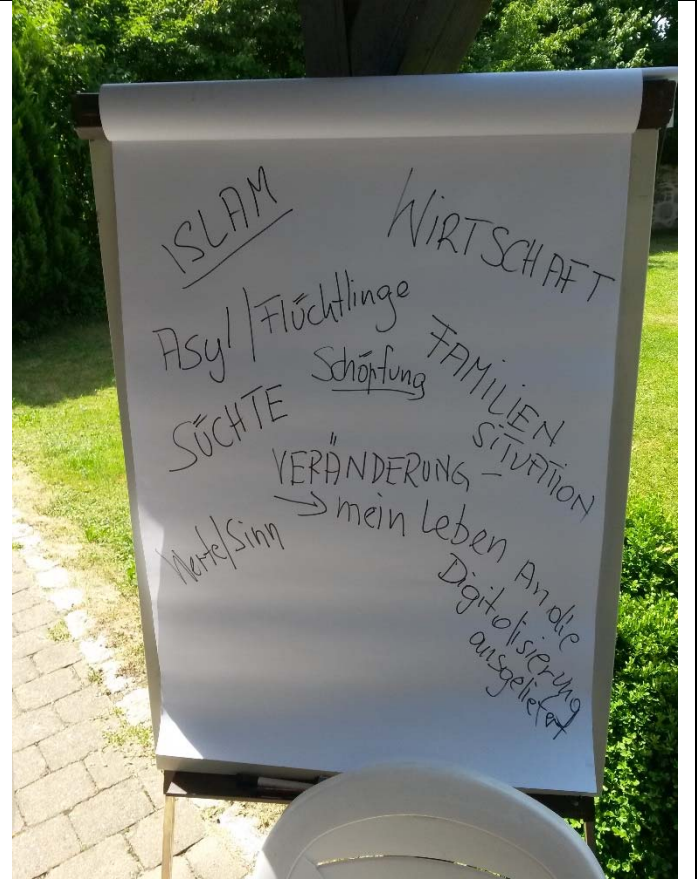 ISLAM
WIRTSCHAFT
Asyl/Flüchtlinge
Schöpfung
FAMILIEN
SITUATION
SÜCHTE
VERÄNDERUNG –
→ mein Leben An die
Digitolisierung
ausgeliefert
Werte/Sinn